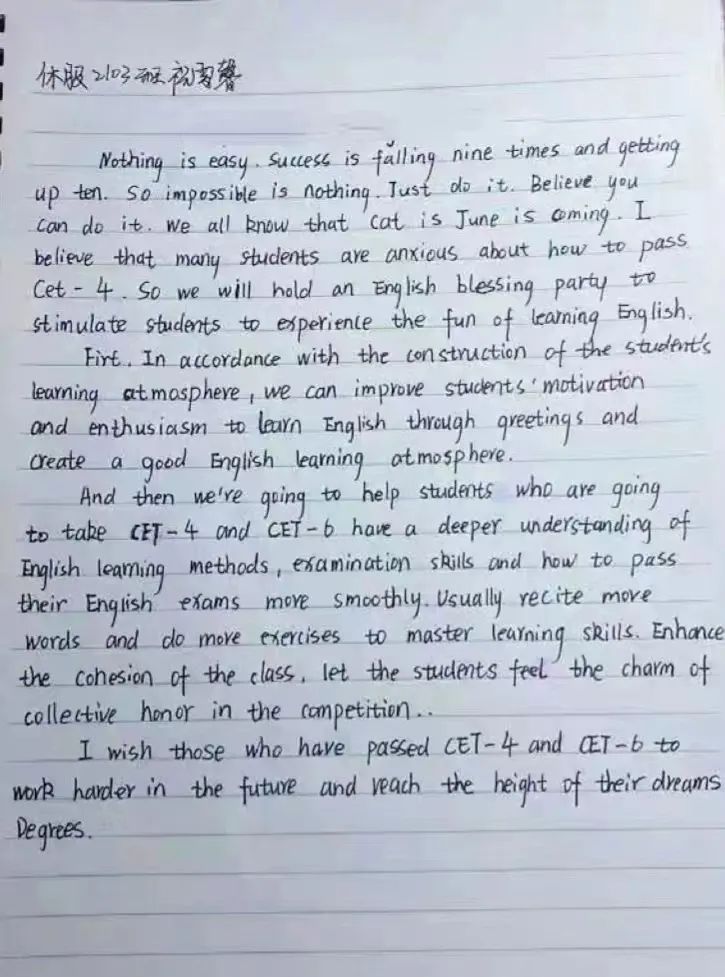 休服2103班祝雪馨
Nothing is easy. Success is falling nine times and getting
up ten. So impossible is nothing. Just do it. Believe you
can do it. We all know that Cat is June is coming. I
believe that many students are anxious about how to pass
Cet-4. So we will hold an English blessing party to
stimulate students to experience the fun of learning English.
Firt. In accordance with the construction of the student's
learning atmosphere, we can improve students' motivation
and enthusiasm to learn English through greetings and
create a good English learning atmosphere.
And then we're going to help students who are going
to take CET-4 and CET-6 have a deeper understanding of
English learning methods, examination skills and how to pass
their English exams more smoothly. Usually recite more
words and do more exercises to master learning skills. Enhance
the cohesion of the class, let the students feel the charm of
collective honor in the competition..
I wish those who have passed CET-4 and CET-6 to
work harder in the future and reach the height of their dreams
Degrees.